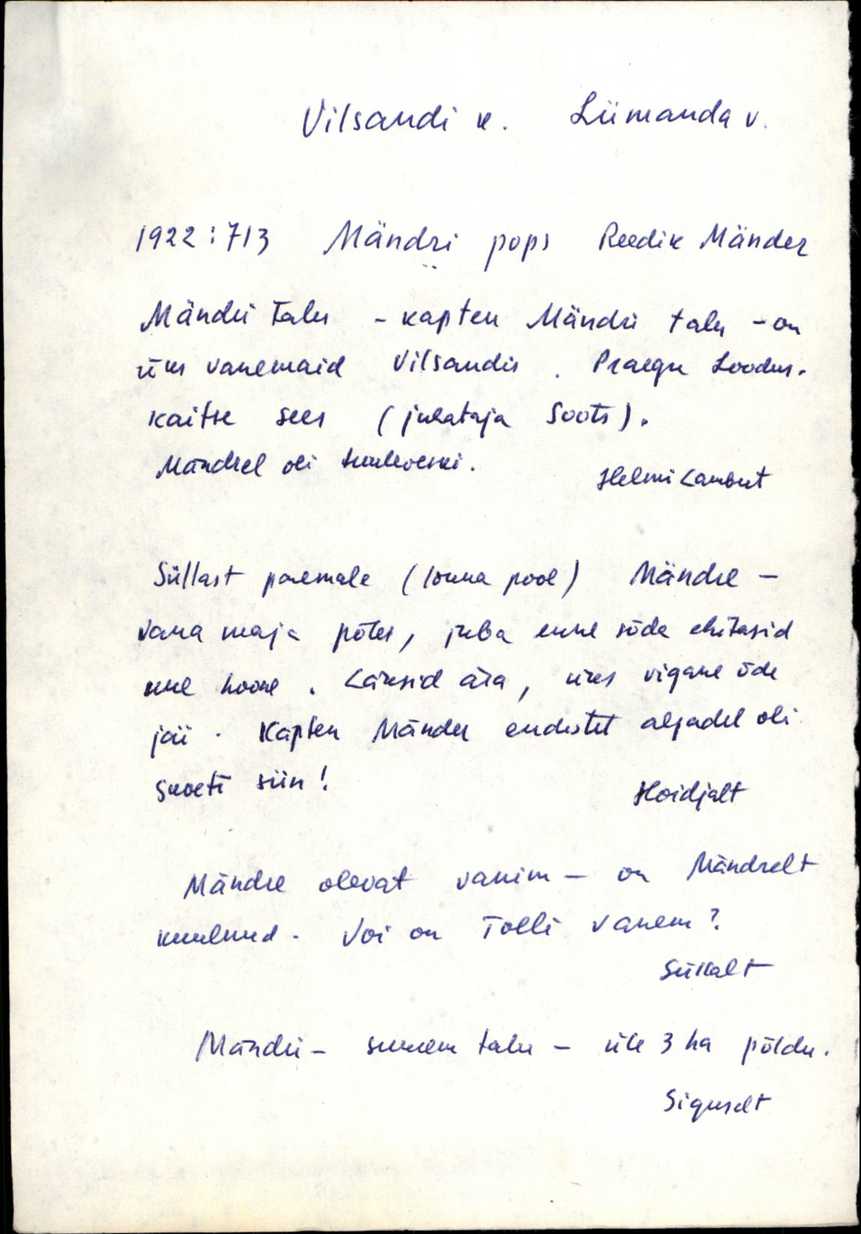 Vilsandi k. Lümanda v.
1922:713 Mändri pops Reedik Mänder
Mändri talu - kapten Mändri talu - on
üks vanemaid Vilsandis. Praegu Loodus-
kaitse sees (juhataja Soots).
Mändrel oli tuuleveski.
Helmi Lambut
Süllast paremale (lõuna pool) Mändre -
vana maja põles, juba enne sõda ehitasid
uue hoone. Läksid ära, üks vigane õde
jäi. Kapten Mändri endistel aegadel oli
siin!
Hoidjalt
Mändre olevat vanim - on Mändrelt
kuulnud. Või on Tolli vanem?
Süllalt
Mändri - suurem talu - üle 3 ha põldu.